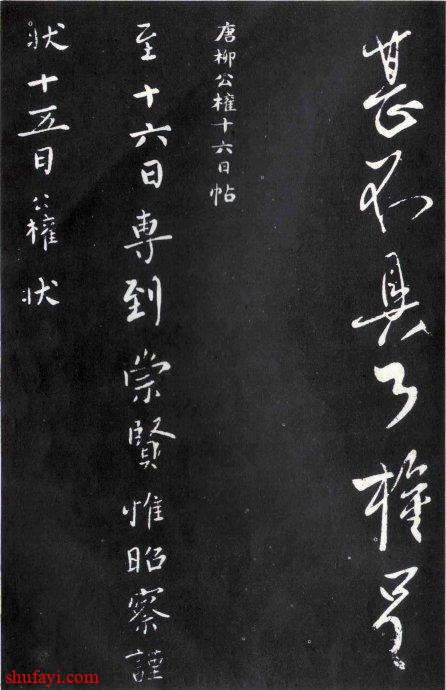 甚不具了權呈
唐柳公權十六日帖
至十六日專到崇賢惟昭察謹
狀十五日公權狀
shufayi.com